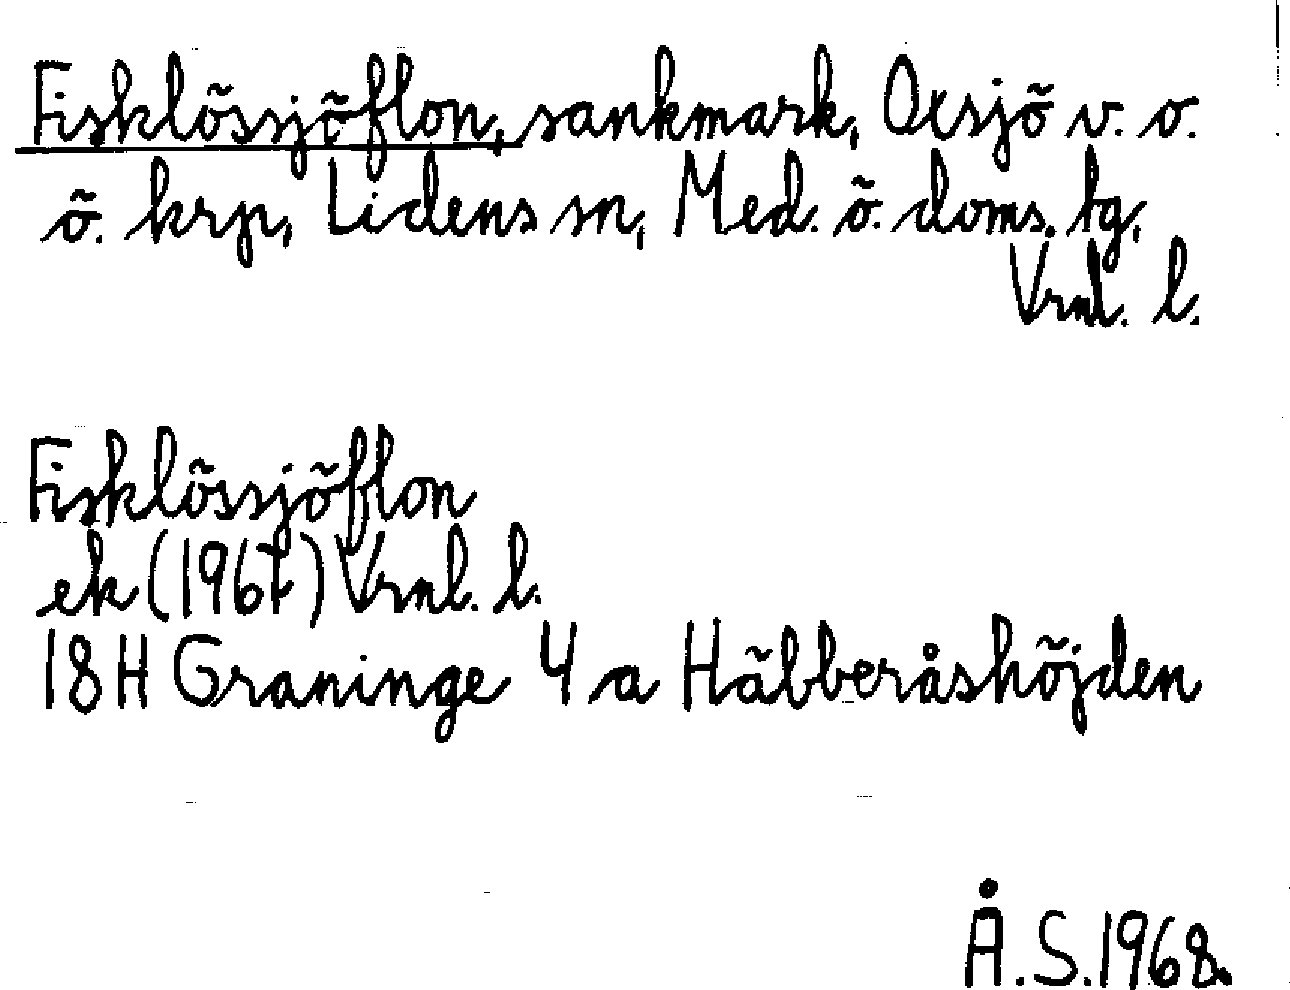 Fisklössjöflon, sankmark, Oxsjö v. o.
ö. krp, Lidens sn, Med. ö. doms. tg,
Vrnl. l.
Fisklössjöflon
ek (1967) Vrnl. l.
18H Graninge 4 a Häbberåshöjden
Å.S.1968.